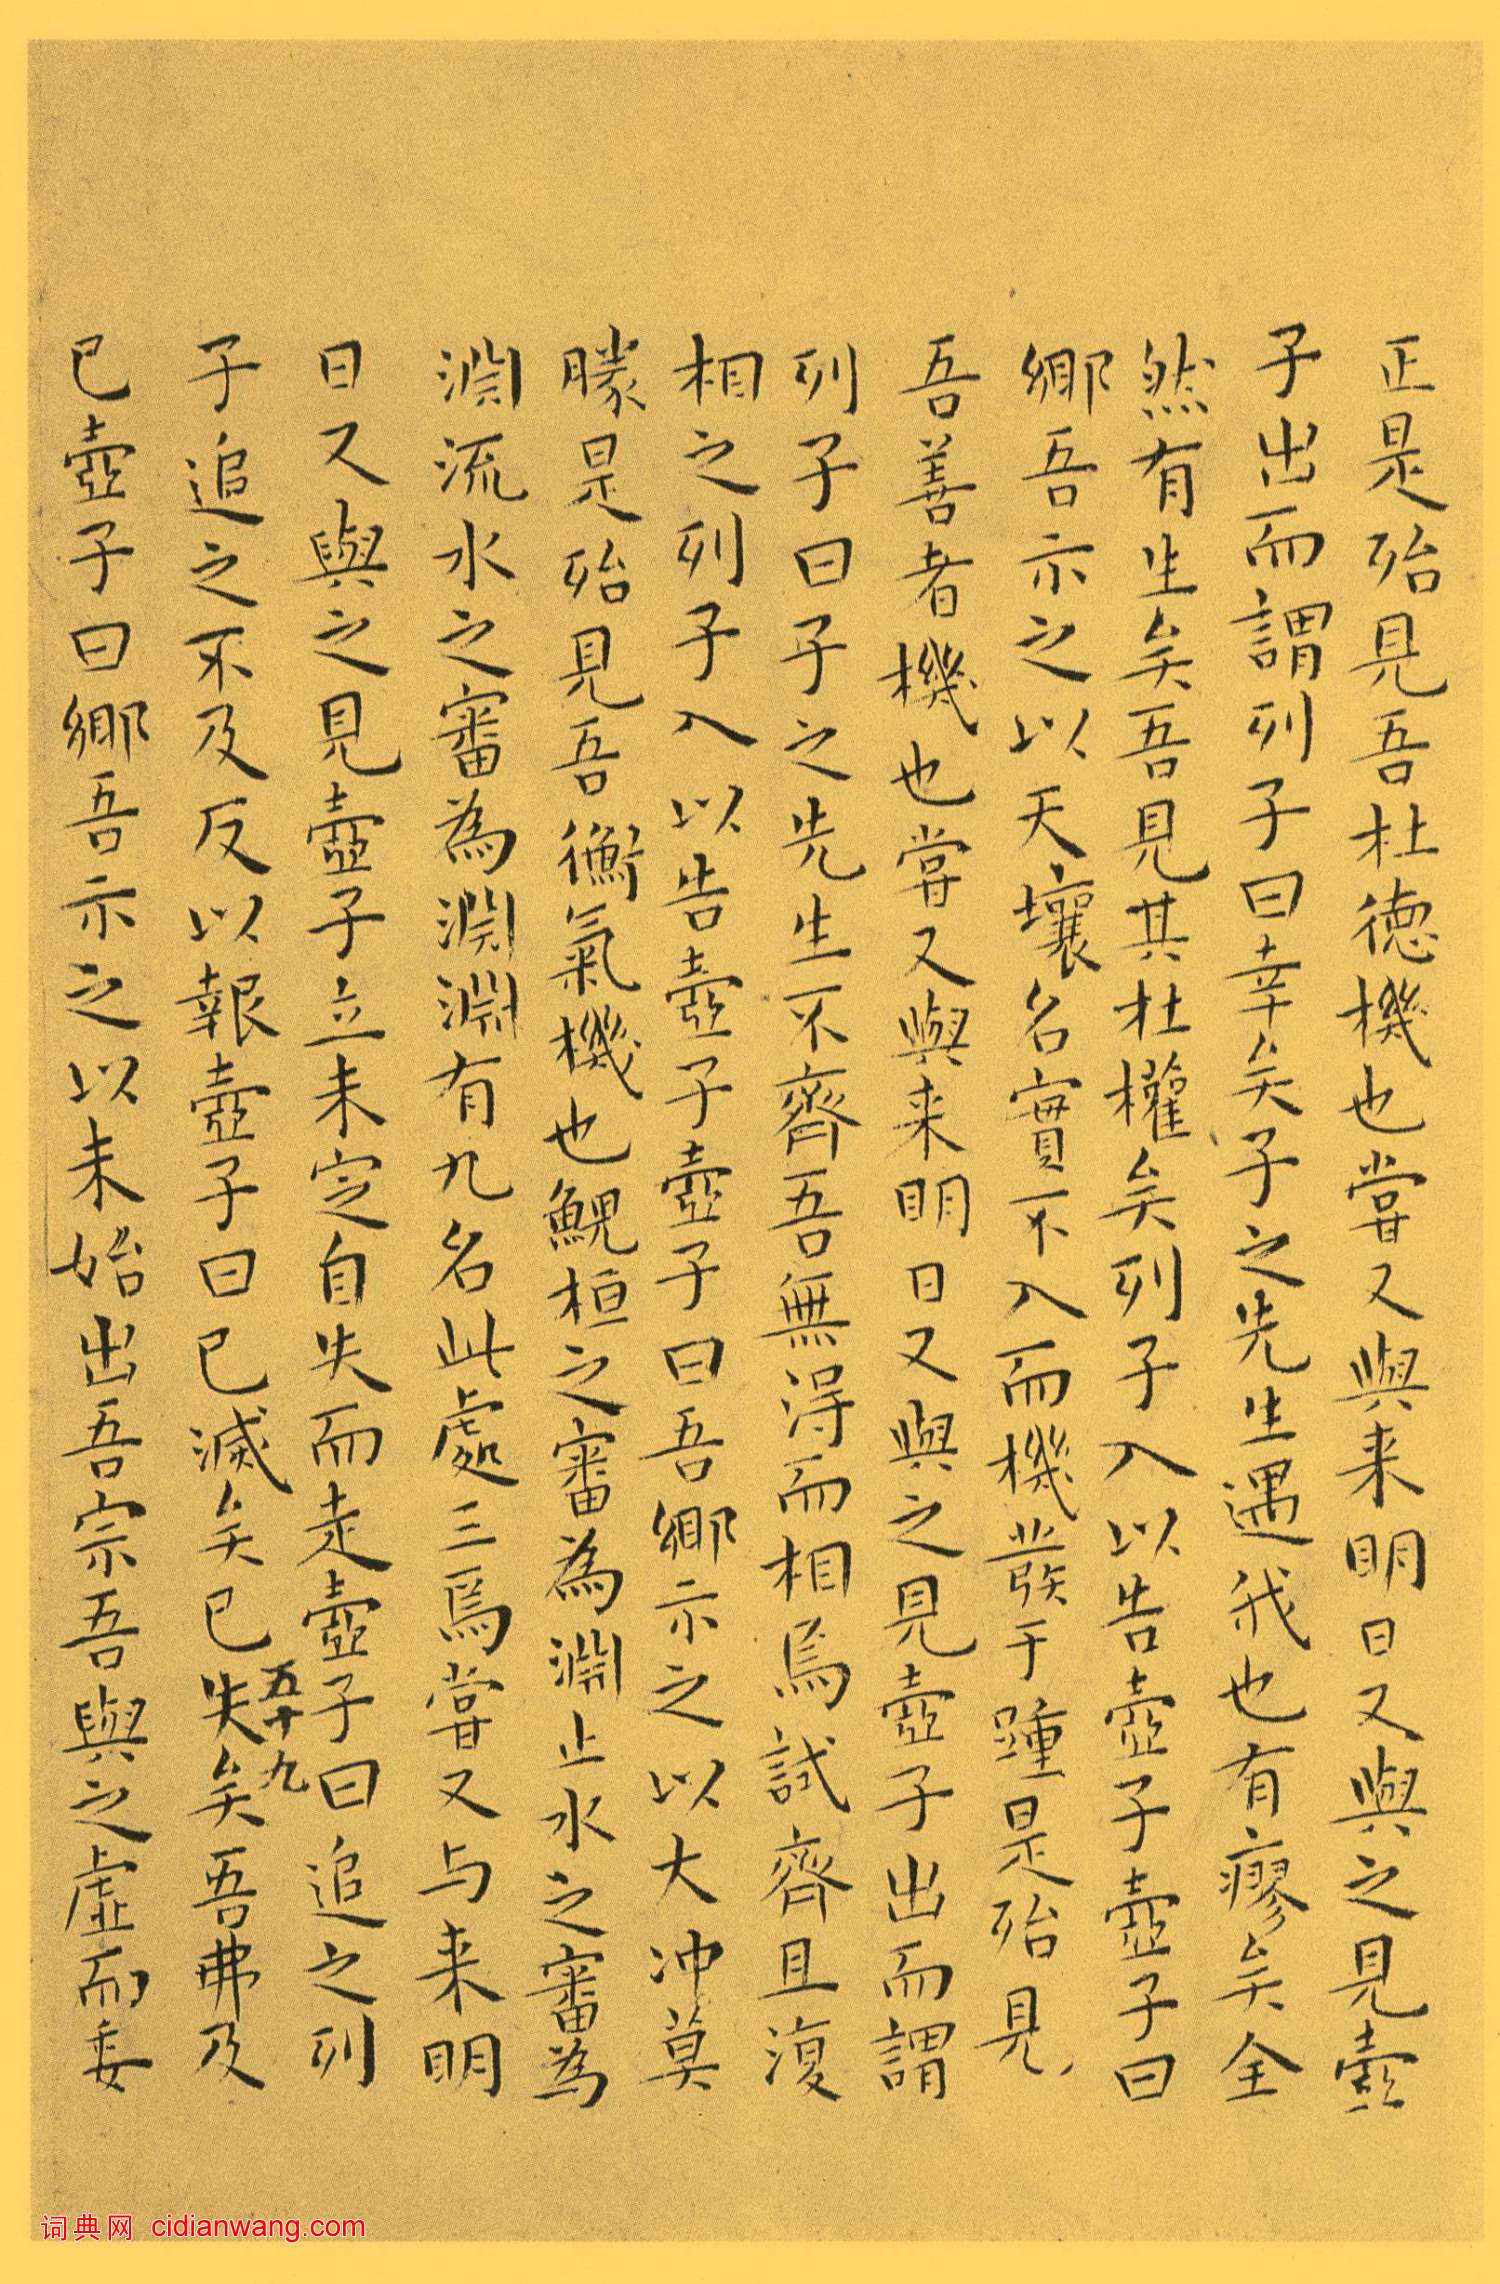 正是殆見吾杜德機也嘗又與来明日又與之見壺
子出而謂列子曰幸矣子之先生遇我也有瘳矣全
然有生矣吾見其杜權矣列子入以告壺子壺子曰
鄉吾示之以天壤名實不入而機發于踵是殆見
吾善者機也嘗又與来明日又與之見壺子出而謂
列子曰子之先生不齊吾無得而相焉試齊且復
相之列子入以告壺子壺子曰吾鄉示之以大冲莫
勝是殆見吾衡氣機也鯢桓之審為淵止水之審為
淵流水之審為淵淵有九名此處三焉嘗又与来明
日又與之見壺子立未定自失而走壺子曰追之列
子追之不及反以報壺子曰已滅矣已失矣吾弗及
五十九
已壺子曰鄉吾示之以未始出吾宗吾與之虛而委
词典网 cidianwang.com